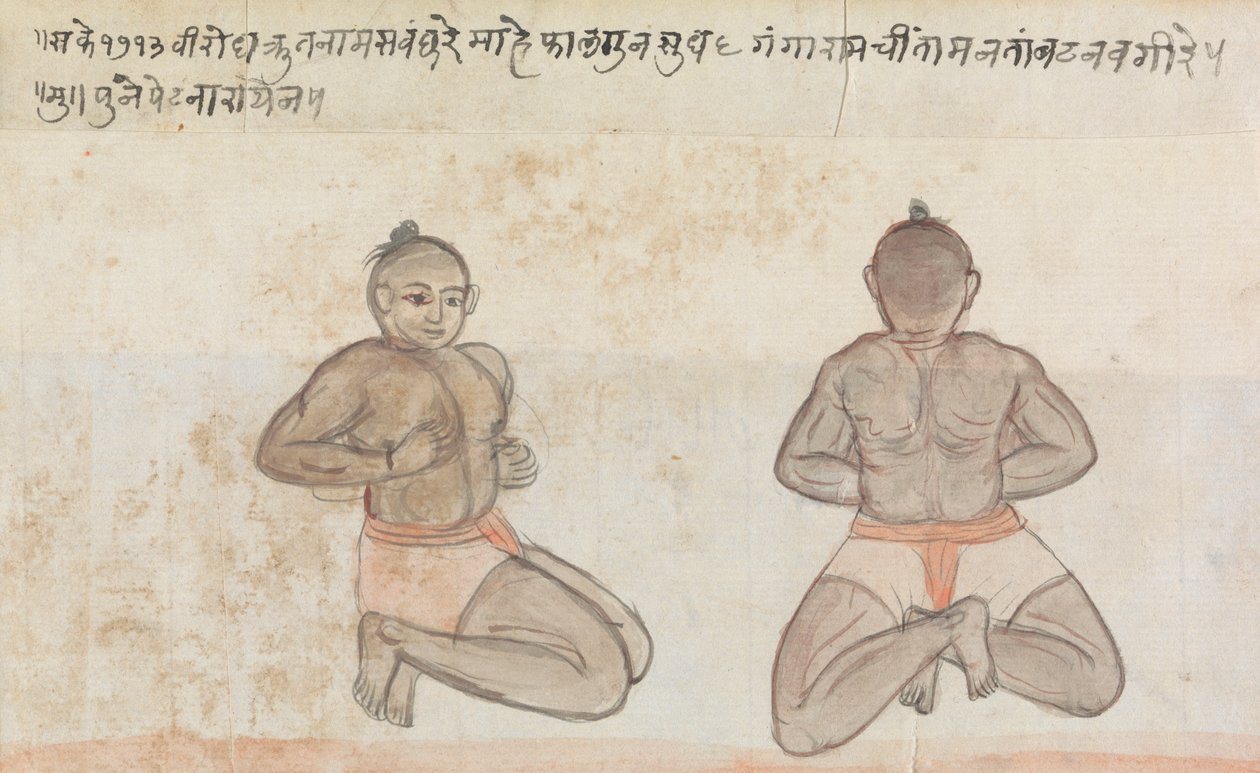 ॥सके १७१३ वीरोधाक्रुतनाम सवंछरे माहे फालगुन सुध ६ गंगाराम चींतामन तांबट नवगीरे ५
॥मु॥ पुने पेट नारायेन ५